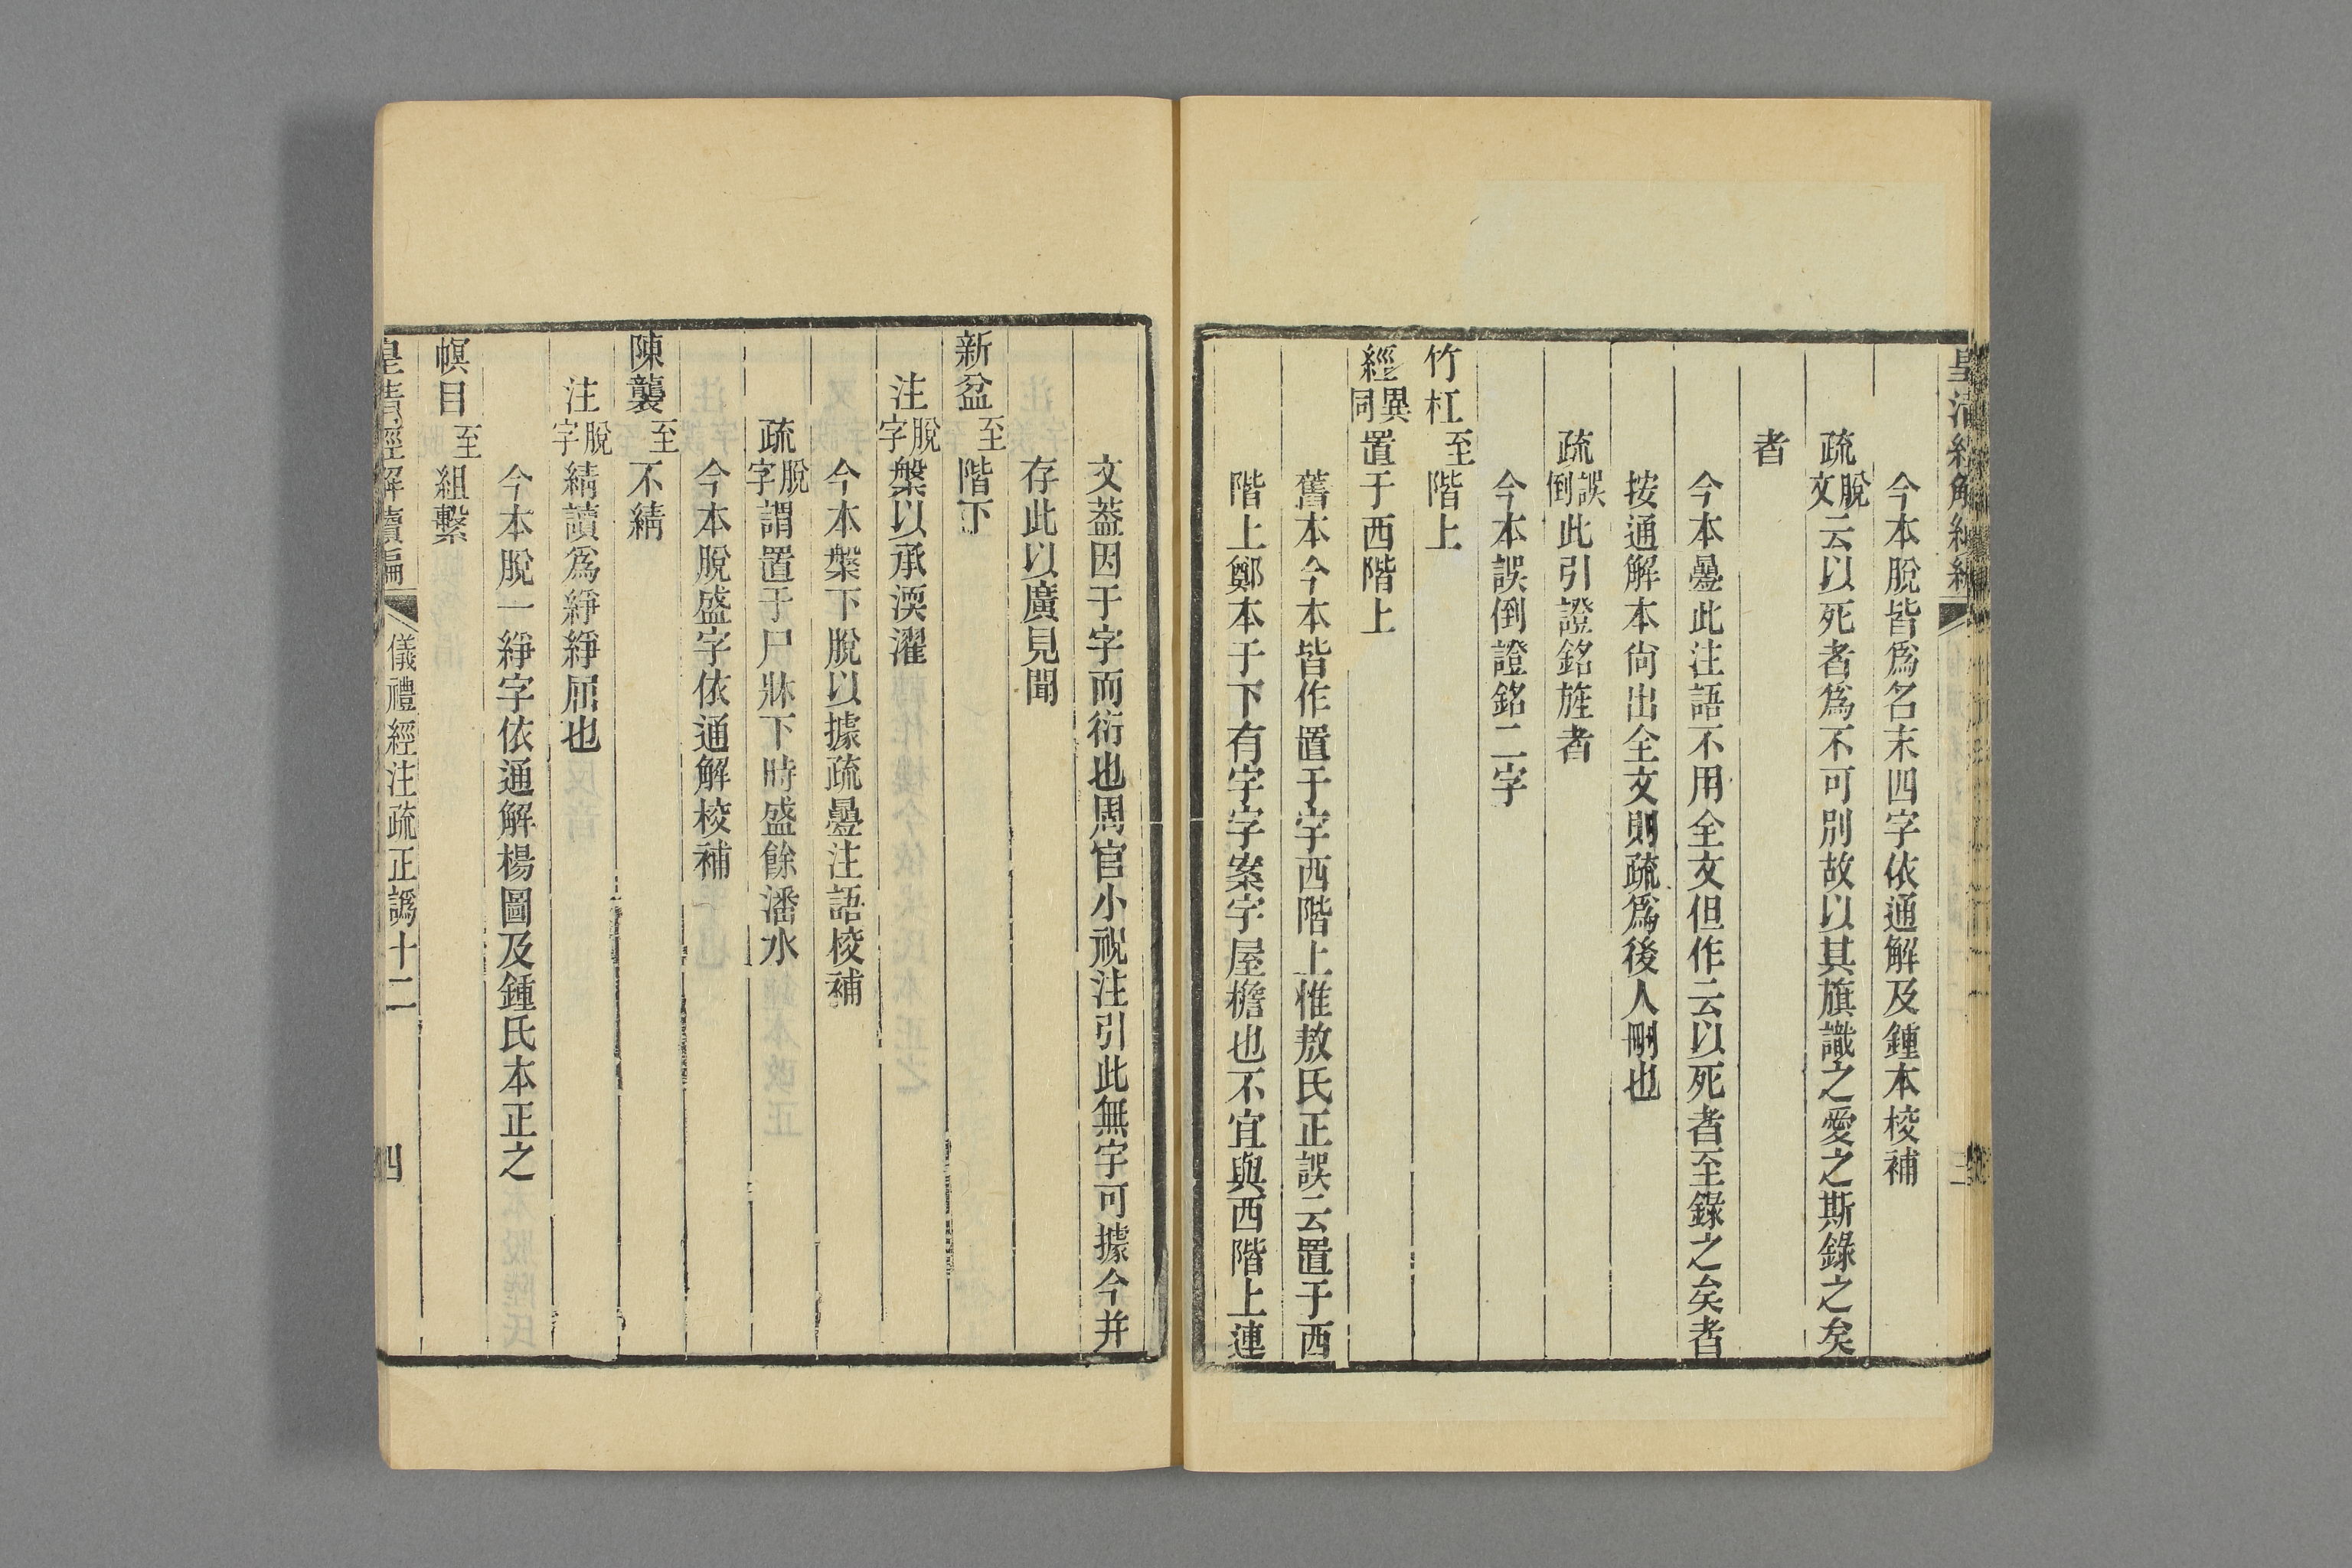 今本脫皆爲名末四字依通解及鍾本校補
疏脫文云以死者爲不可別故以其旗識之愛之斯錄之矣
者
今本疊此注語不用全文但作云以死者至錄之矣者
按通解本尙出全文則疏爲後人刪也
疏誤倒此引證銘旌者
今本誤倒證銘二字
竹杠至階上
經異同置于西階上
舊本今本皆作置于宇西階上惟敖氏正誤云置于西
階上鄭本于下有宇字案宇屋檐也不宜與西階上連
文蓋因于字而衍也周官小祝注引此無宇可據今并
存此以廣見聞
新盆至階下
注脫字槃以承渜濯
今本槃下脫以據疏疊注語校補
疏脫字謂置于尸牀下時盛餘潘水
今本脫盛字依通解校補
陳襲至不綪
注脫字綪讀爲綪綪屈也
今本脫一綪字依通解楊圖及鍾氏本正之
幎目至組繫
皇清經解續編
儀禮經注疏正譌十二
四